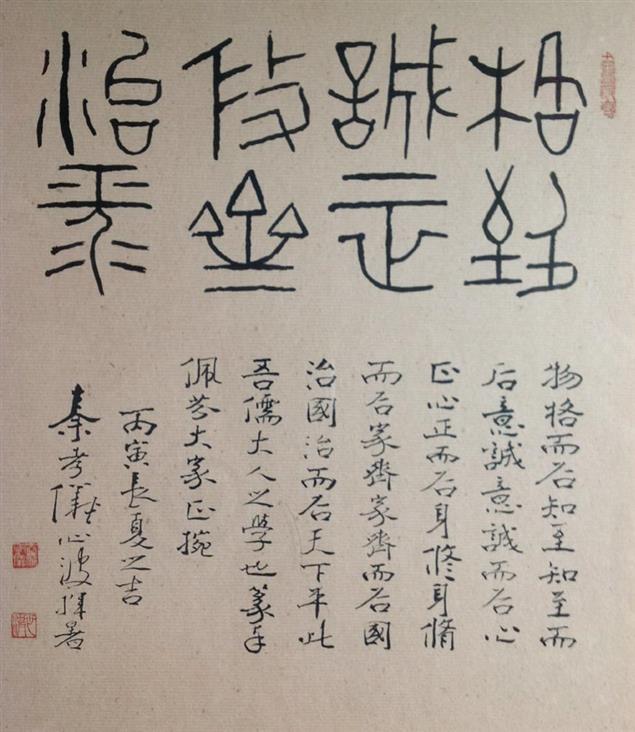 格致
誠正
修齊
治平
物格而后知至知至而
后意誠意誠而后心
正心正而后身修身脩
而后家齊家齊而后國
治國治而后天下平此
吾儒大人之學也篆奉
佩芬大家正捥
丙寅長夏之吉
秦孝儀心波揮暑